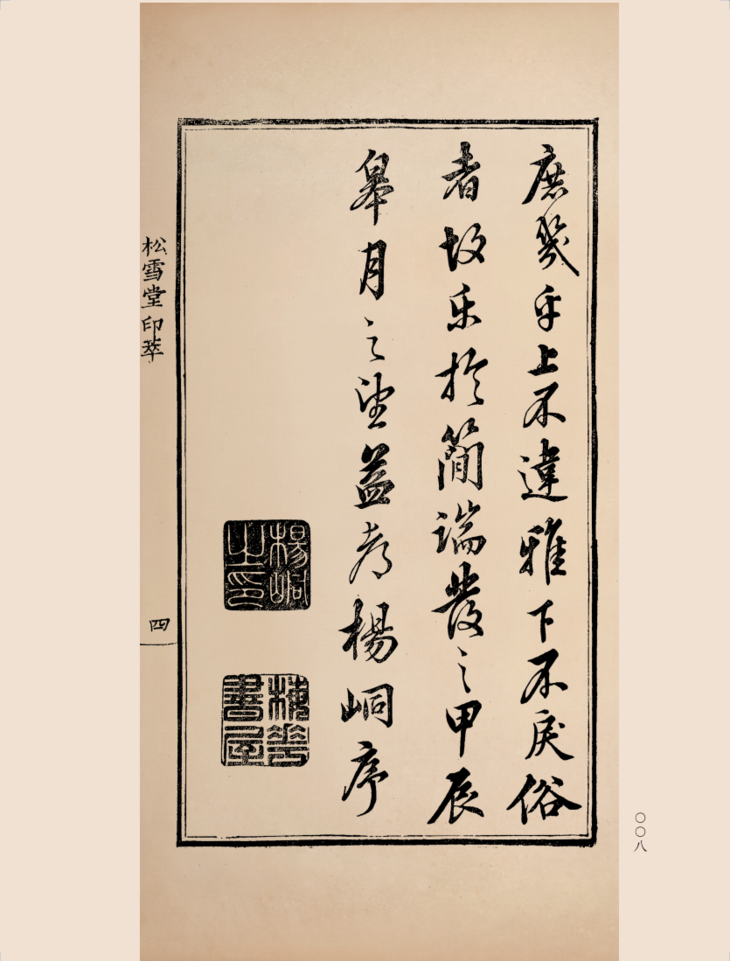 庶幾乎上不違雅下不戾俗
者故樂於簡端發之甲辰
皋月之望益考楊峒序
楊峒之印
梅花書屋
松雪堂印萃
四
〇〇八